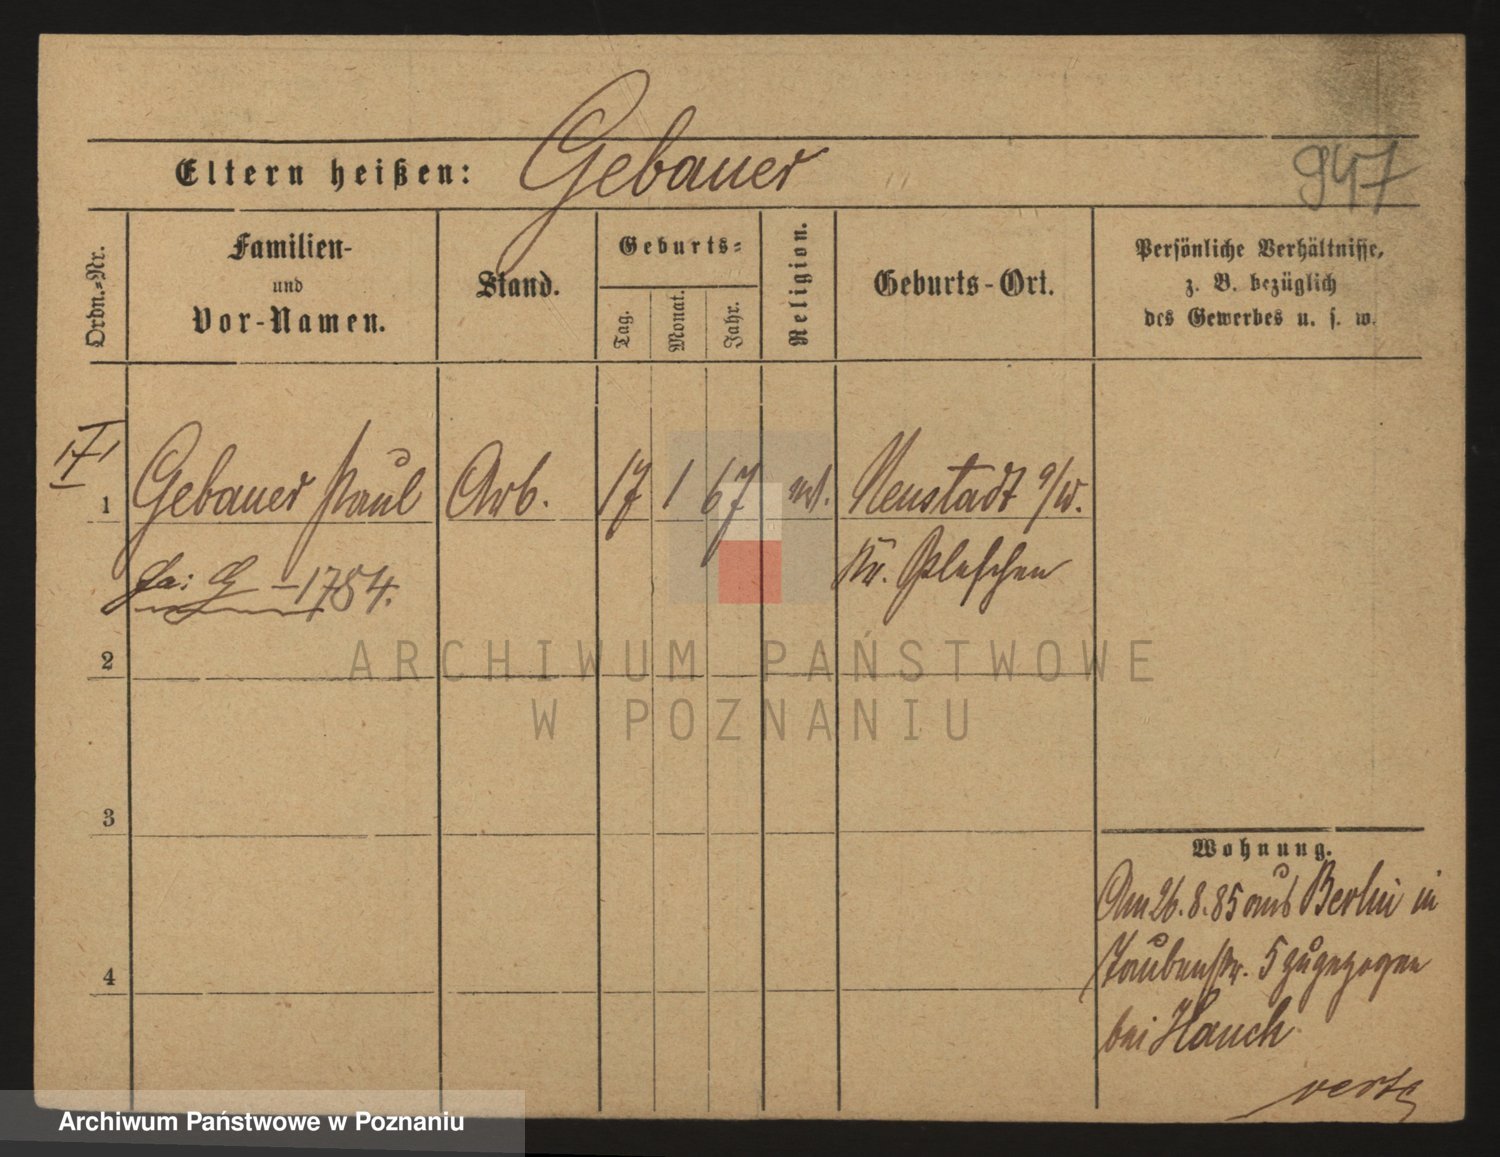 Eltern heißen: Gebauer
947
Ordn.-Nr.
Familien-
und
Vor-Namen.
Stand.
Geburts-
Tag.
Monat.
Jahr.
Religion.
Geburts-Ort.
Persönliche Verhältnisse,
z. B. bezüglich
des Gewerbes u. s. w.
1 Gebauer Paul Arb. 17 1 67 Neustadt a/W.
Kr. Pleschen
G - 1784.
2
3
4
Wohnung.
Am 26.8.85 aus Berlin in
Taubenstr. 5 zugezogen
bei Hauch
verte
ARCHIWUM PAŃSTWOWE
W POZNANIU
Archiwum Państwowe w Poznaniu